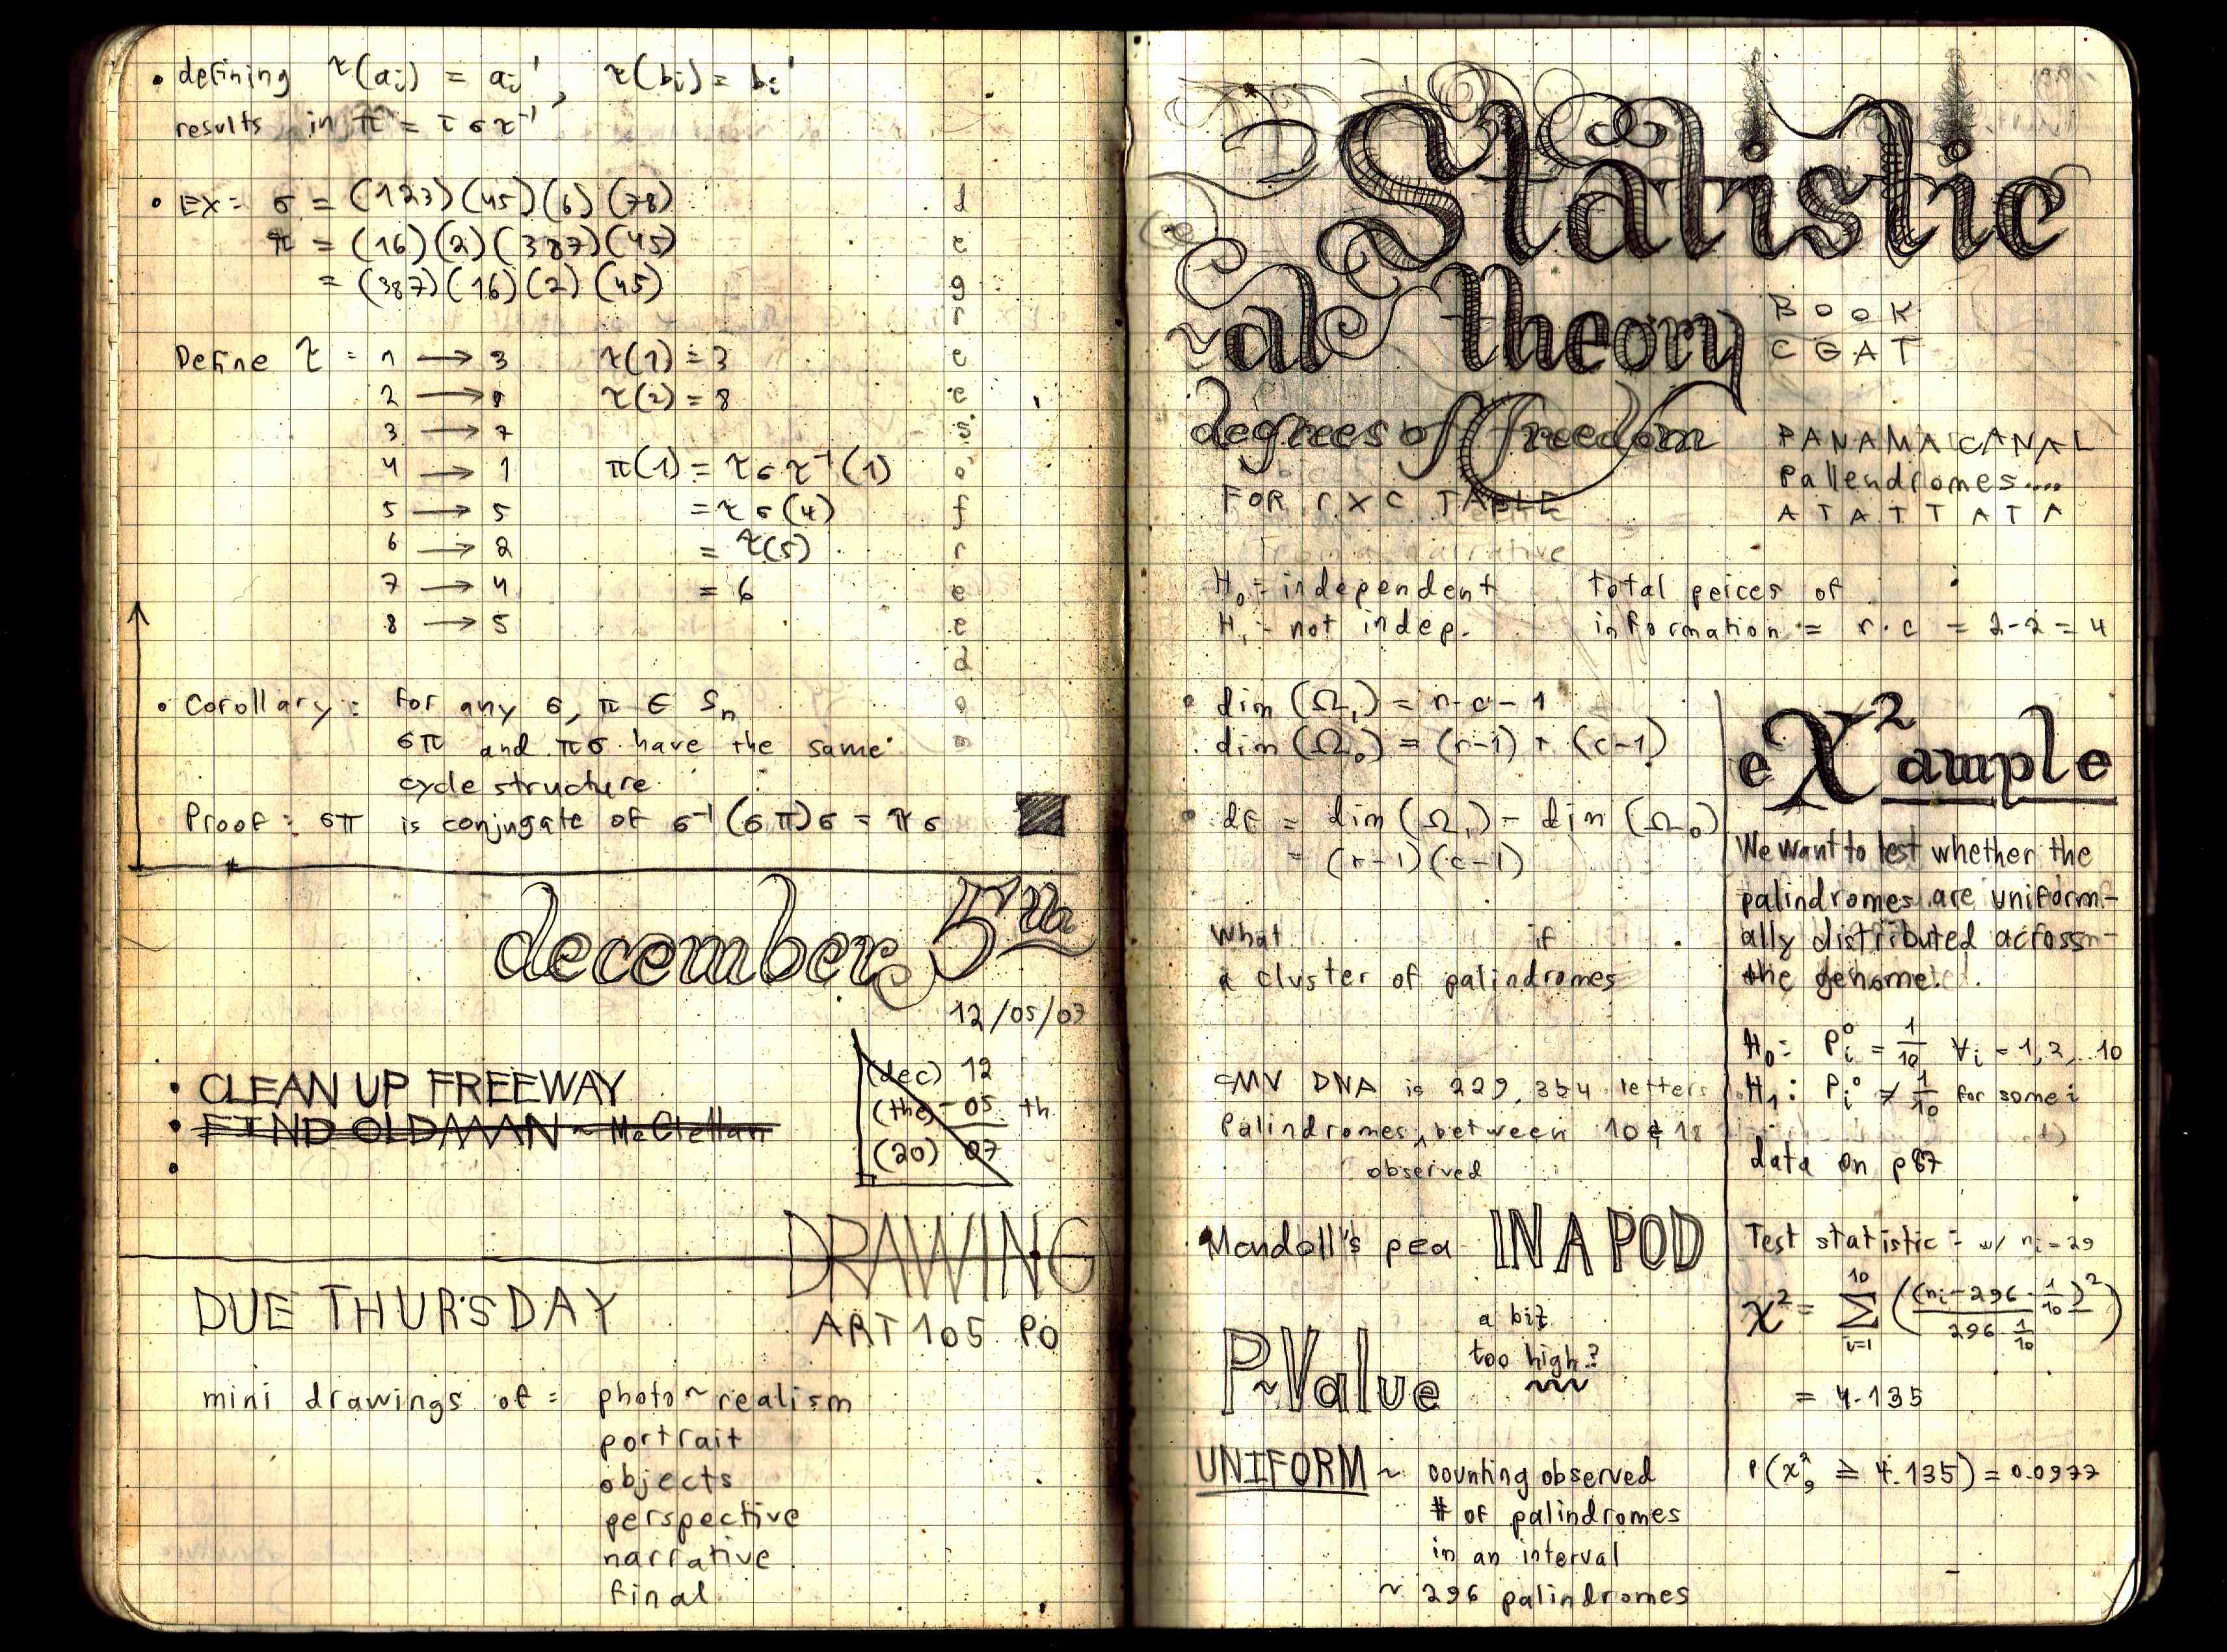 • defining τ(ai) = ai', τ(bi) = bi'
results in π = τστ⁻¹
• EX: σ = (123)(45)(6)(78)
π = (16)(2)(387)(45)
= (387)(16)(2)(45)
Define τ : 1 → 3 τ(1) = 3
2 → 8 τ(2) = 8
3 → 7
4 → 1 π(1) = τστ⁻¹(1)
5 → 5 = τσ(4)
6 → 2 = τ(5)
7 → 4 = 6
8 → 5
d
e
g
r
e
e
s
o
f
r
e
e
d
o
m
• Corollary: for any σ, π ∈ Sn
σπ and πσ have the same
cycle structure
Proof: σπ is conjugate of σ⁻¹(σπ)σ = πσ
december 5th
12/05/07
• CLEAN UP FREEWAY
• FIND OLDMAN ~ McClellan
•
(dec) 12
(the) - 05 th
(20) 07
DRAWING
ART 105 PO
DUE THURSDAY
mini drawings of: photo~realism
portrait
objects
perspective
narrative
final
Statistic
~al theory
BOOK
CGAT
degrees of freedom
FOR r x c TABLE
PANAMA CANAL
Pallendromes....
ATATTATA
H₀ = independent
H₁ - not indep.
total peices of
information = r·c = 2-2 = 4
• dim (Ω₁) = r·c - 1
• dim (Ω₀) = (r-1) + (c-1)
• df = dim (Ω₁) - dim (Ω₀)
= (r-1)(c-1)
What if
a cluster of palindromes
CMV DNA is 229,354 letters
Palindromes ^ between 10 & 18
observed
• Mendell's pea IN A POD
P~Value
a bit
too high?
UNIFORM ~ counting observed
# of palindromes
in an interval
~ 296 palindromes
eX²ample
We want to test whether the
palindromes are uniform-
ally distributed across
the genome.
H₀: Pi⁰ = 1/10 ∀i = 1,2,..10
H₁: Pi⁰ ≠ 1/10 for some i
data on p87
Test statistic: w/ ni = 29
χ² = Σ i=1 10 ((ni - 296 · 1/10)² / 296 · 1/10)
= 4.135
P(χ²₉ ≥ 4.135) = 0.0977